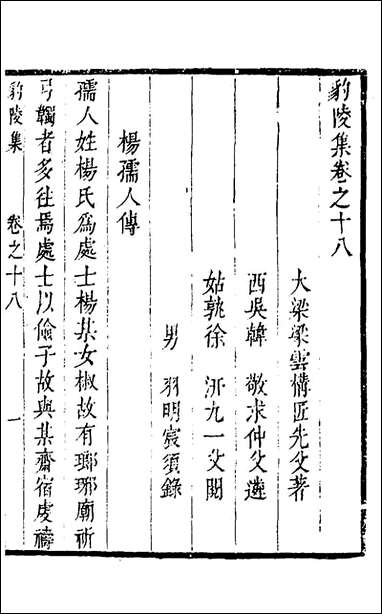 豹陵集卷之十八
大梁梁雲構匠先父著
西吳韓　敬求仲父選
姑孰徐　沂九一父閱
男　羽明宸須錄
楊孺人傳
孺人姓楊氏爲處士楊某女椒故有瑯琊廟祈
弓韣者多往焉處士以儉子故與某齋宿虔禱
豹陵集　卷之十八　一